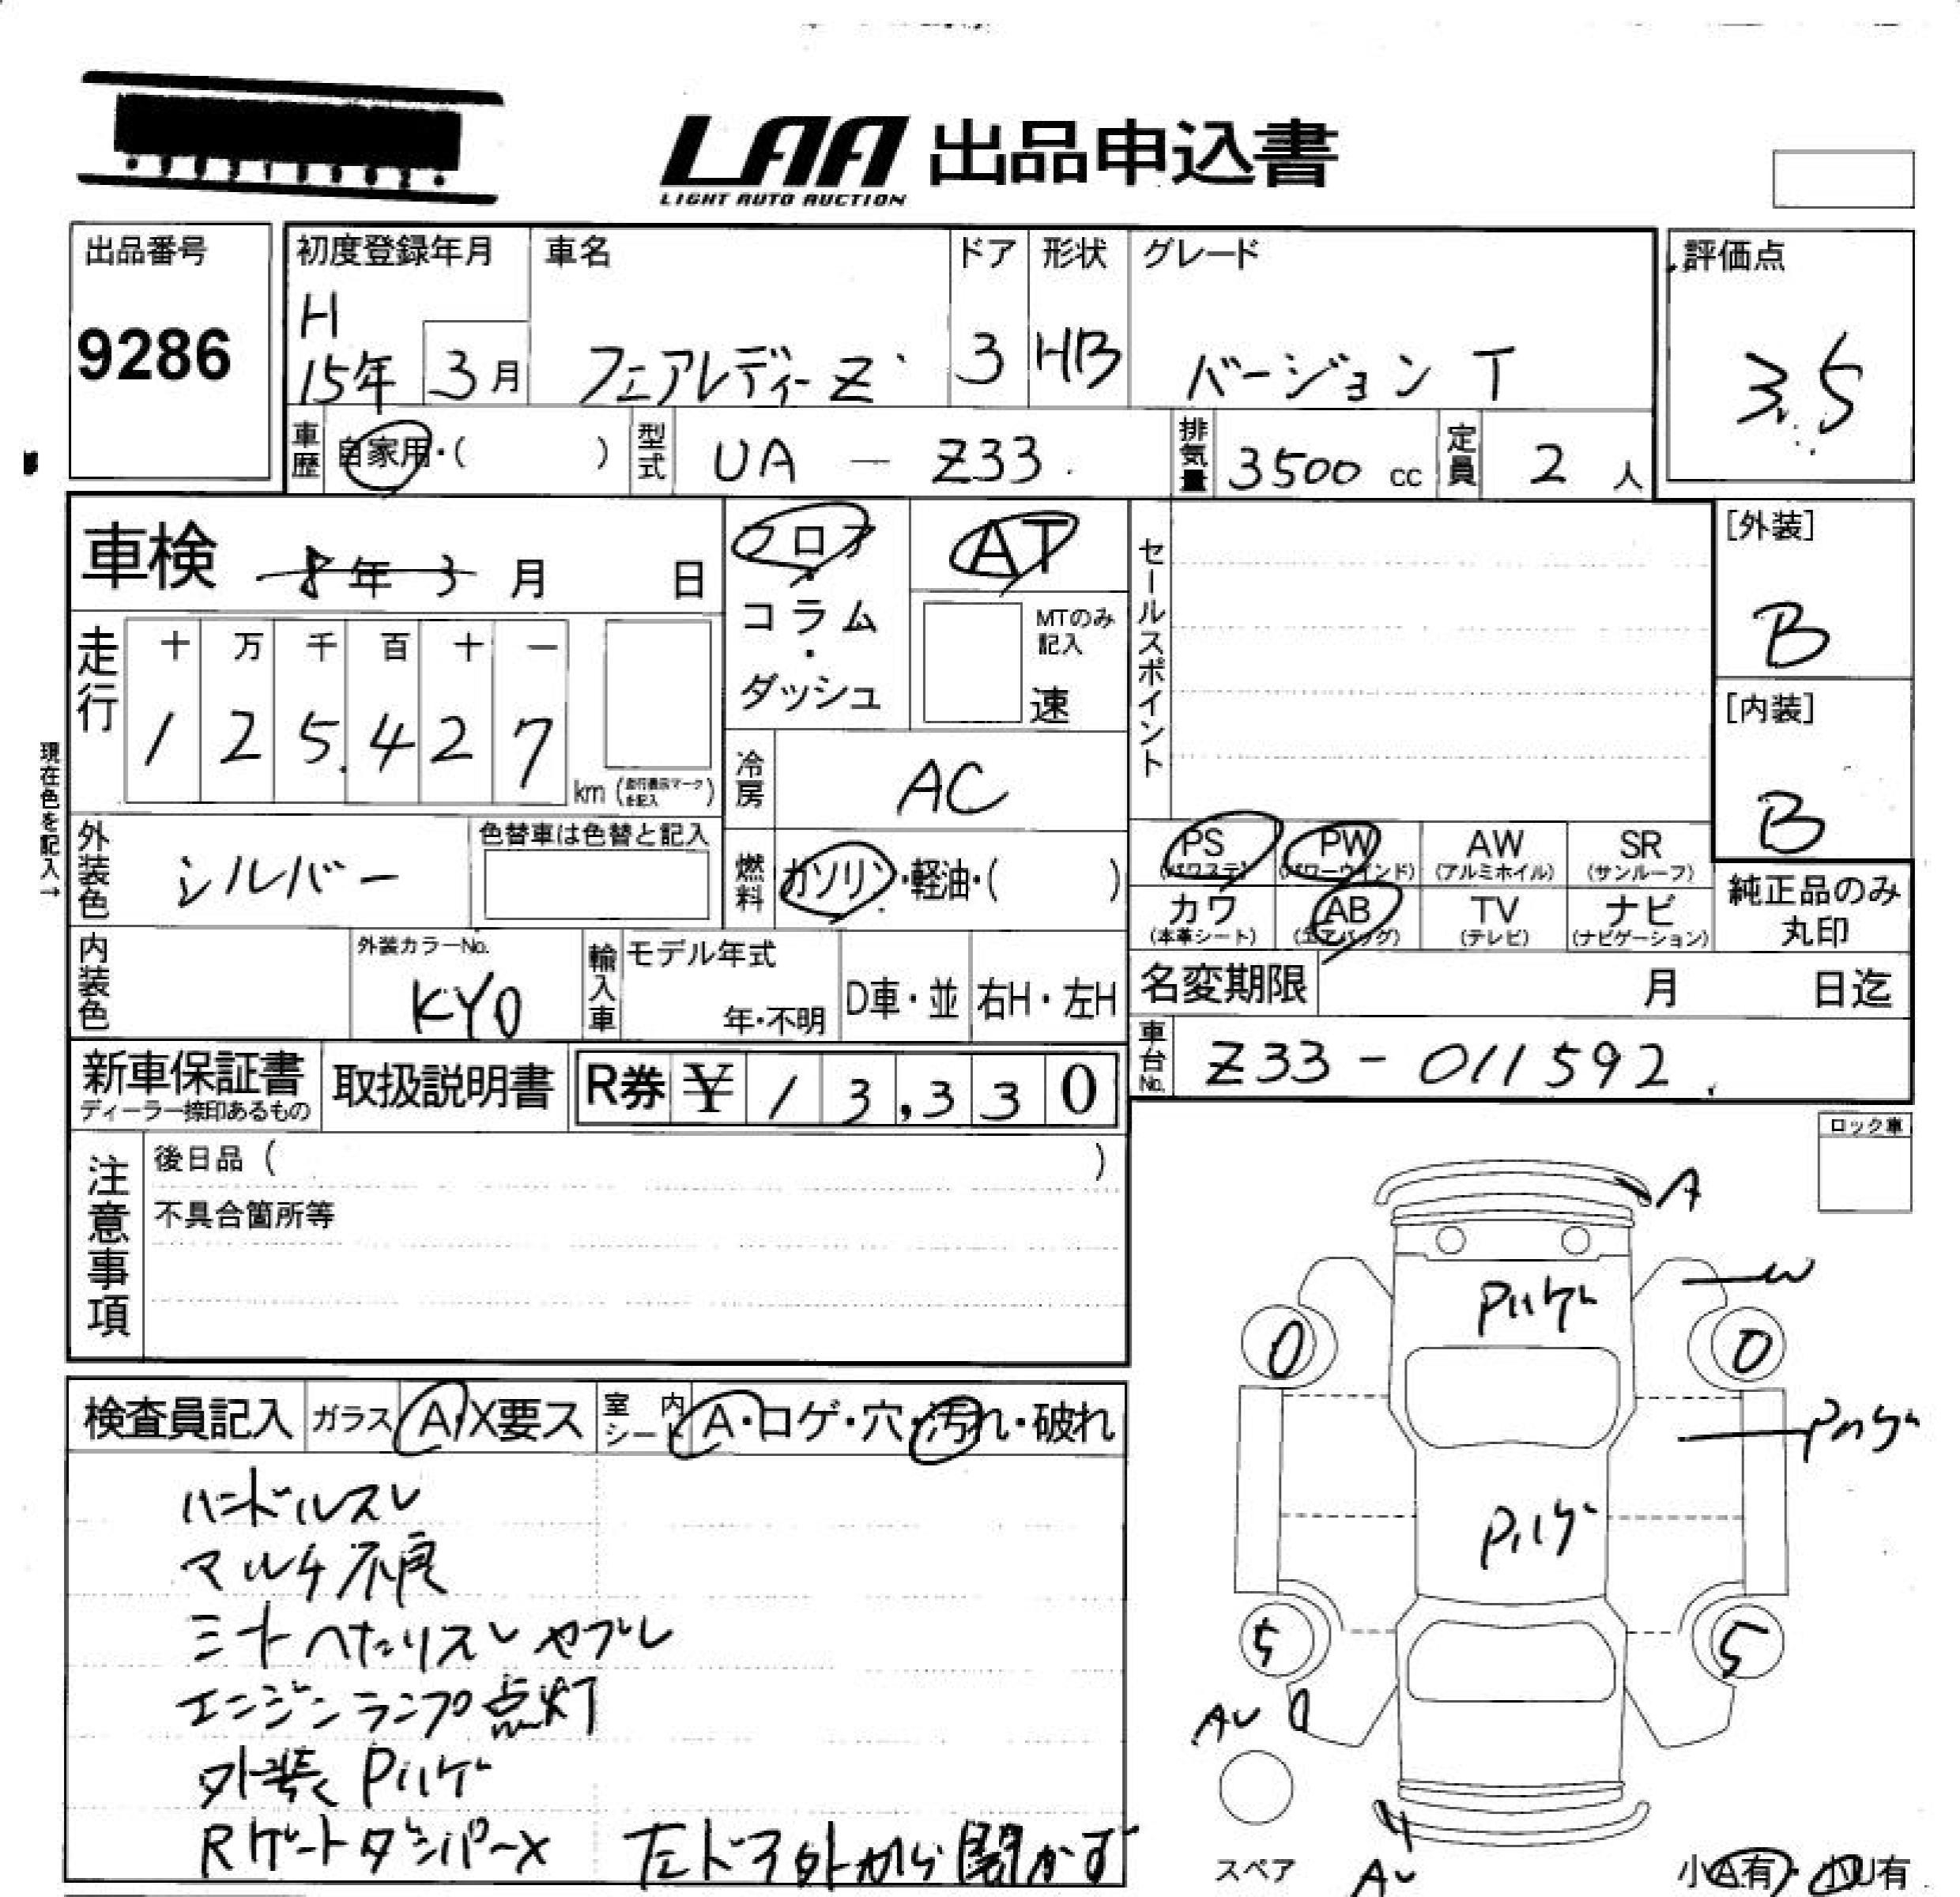 LAA 出品申込書
LIGHT AUTO AUCTION
出品番号 初度登録年月 車名 ドア 形状 グレード 評価点
9286 H 15年 3月 フェアレディーZ 3 HB バージョンT 3.5
車歴 自家用・( ) 型式 UA - Z33 排気量 3500 cc 定員 2 人
車検 8年 3月 日
フロア・コラム・ダッシュ
AT
MTのみ記入
速
セールスポイント
[外装]
B
[内装]
B
走行 十 万 千 百 十 一
1 2 5. 4 2 7
km (走行表示マークを記入)
現在色を記入→
冷房 AC
外装色 シルバー 色替車は色替と記入
燃料 ガソリン・軽油・( )
PS (パワステ) PW (パワーウインド) AW (アルミホイル) SR (サンルーフ)
カワ (本革シート) AB (エアバッグ) TV (テレビ) ナビ (ナビゲーション)
純正品のみ
丸印
内装色 外装カラーNo. KY0 輸入車 モデル年式 年・不明 D車・並 右H・左H
名変期限 月 日迄
新車保証書 取扱説明書 R券 ¥ 1 3,3 3 0
ディーラー捺印あるもの
車台No. Z33-011592
注意事項
後日品 ( )
不具合箇所等
ロック車
検査員記入 ガラス A・X要ス 室内シート A・コゲ・穴・汚れ・破れ
ハンドルスレ
マルチ不良
シートヘタリスレヤブレ
エンジンランプ点灯
外装Pハゲ
RゲートダンパーX 左ドア外から開かず
A
W
Pハゲ
0 0
Pハゲ
Pハゲ
5 5
AU
スペア
AU
小A有・小U有